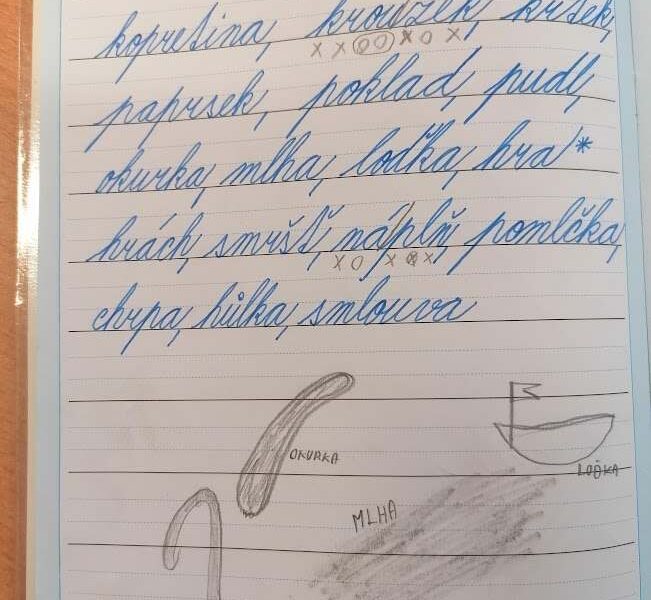 kopretina, kroužek, krtek,
x x o o x o x
paprsek, poklad, pudl,
okurka, mlha, loďka, hra*
hrách, smršť, náplň, pomlčka,
x o x x x
chrpa, hůlka, smlouva
OKURKA
LOĎKA
MLHA